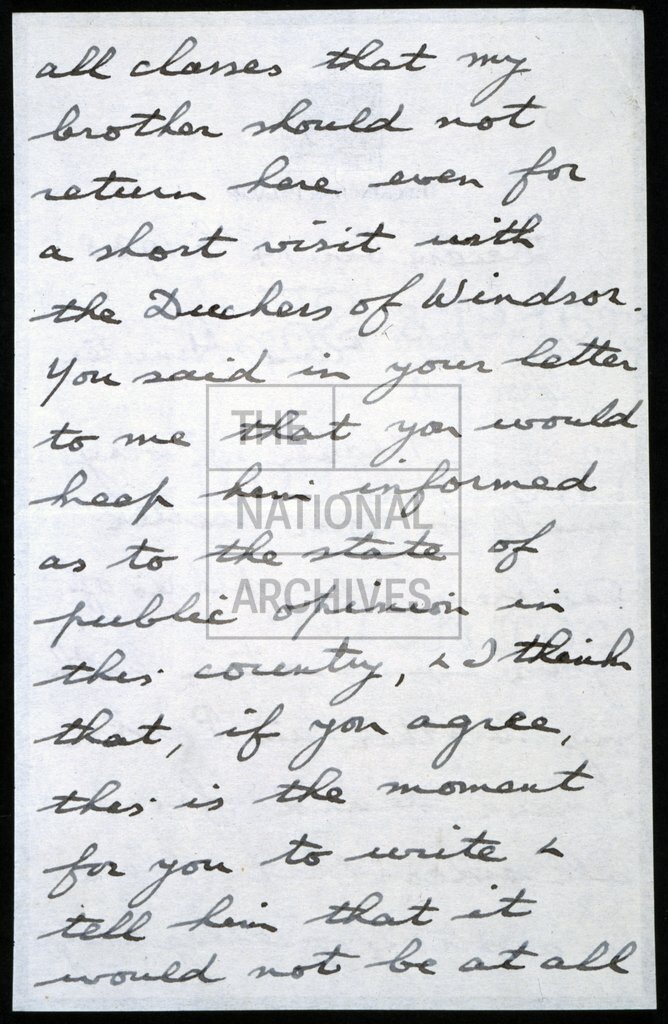 all classes that my
brother should not
return here even for
a short visit with
the Duchess of Windsor.
You said in your letter
to me that you would
keep him informed
as to the state of
public opinion in
this country, & I think
that, if you agree,
this is the moment
for you to write &
tell him that it
would not be at all
THE
NATIONAL
ARCHIVES